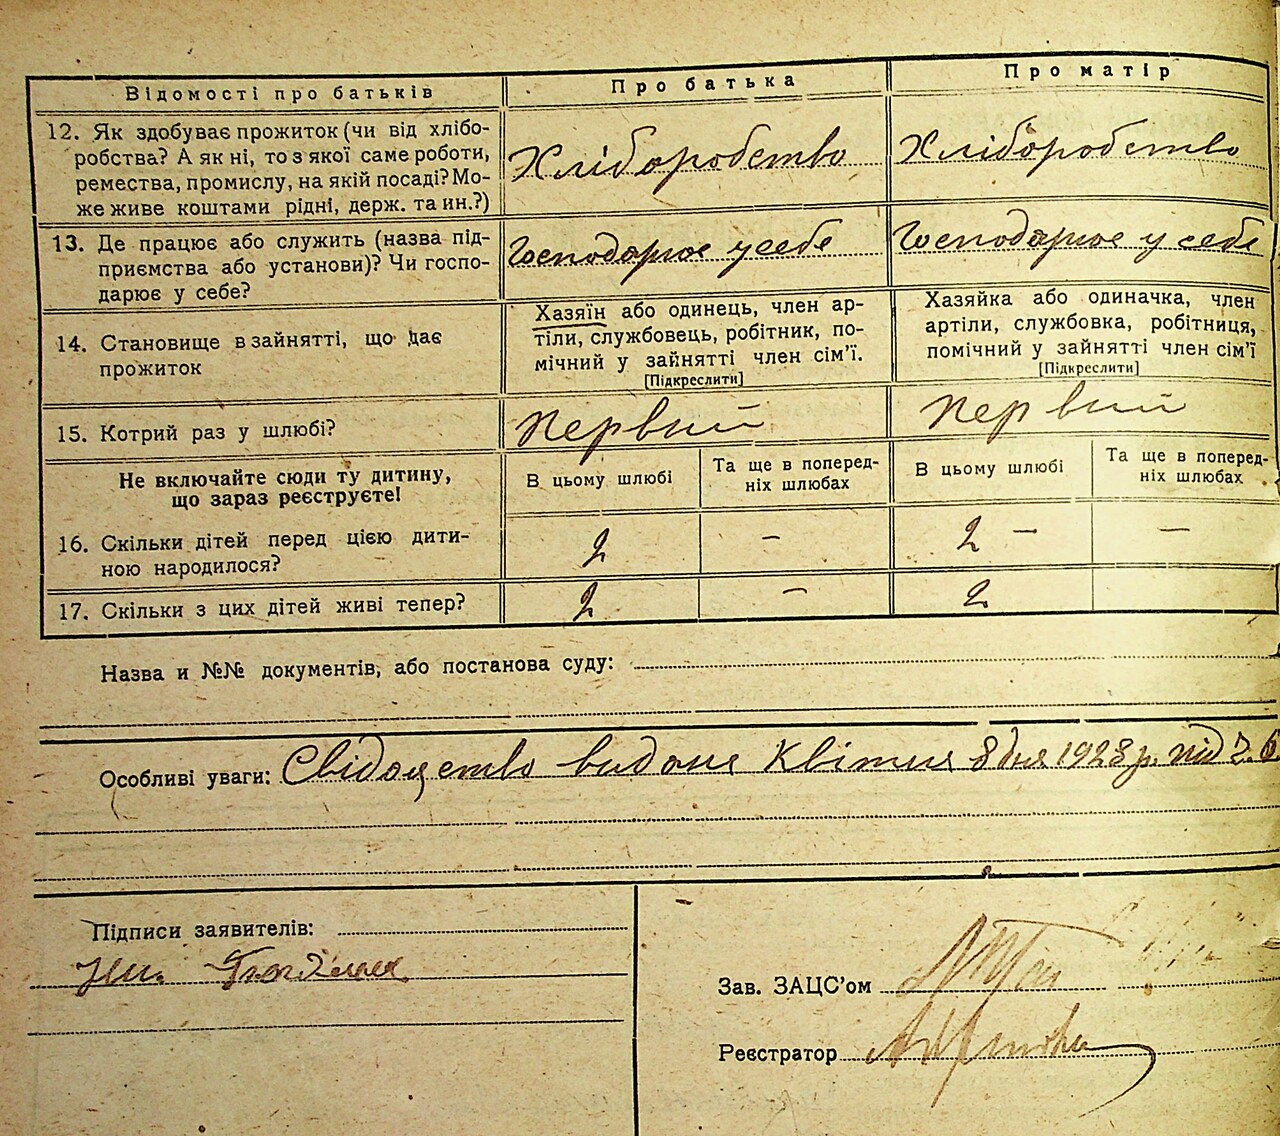 Відомості про батьків
Про батька
Про матір
12. Як здобуває прожиток (чи від хлібо-
робства? А як ні, то з якої саме роботи,
ремества, промислу, на якій посаді? Мо-
же живе коштами рідні, держ. та ин.?)
Хліборобство
Хліборобство
13. Де працює або служить (назва під-
приємства або установи)? Чи госпо-
дарює у себе?
Господарює у себе
Господарює у себе
14. Становище в зайнятті, що дає
прожиток
Хазяїн або одинець, член ар-
тіли, службовець, робітник, по-
мічний у зайнятті член сім'ї.
[Підкреслити]
Хазяйка або одиначка, член
артіли, службовка, робітниця,
помічний у зайнятті член сім'ї
[Підкреслити]
15. Котрий раз у шлюбі?
Первий
Первий
Не включайте сюди ту дитину,
що зараз реєструєте!
В цьому шлюбі
Та ще в поперед-
ніх шлюбах
В цьому шлюбі
Та ще в поперед-
ніх шлюбах
16. Скільки дітей перед цією дити-
ною народилося?
2 – 2 – –
17. Скільки з цих дітей живі тепер?
2 – 2
Назва и №№ документів, або постанова суду:
Особливі уваги: Свідоцтво видане Квітня 8 дня 1928 р. під
Підписи заявителів:
Зав. ЗАЦС'ом
Реєстратор